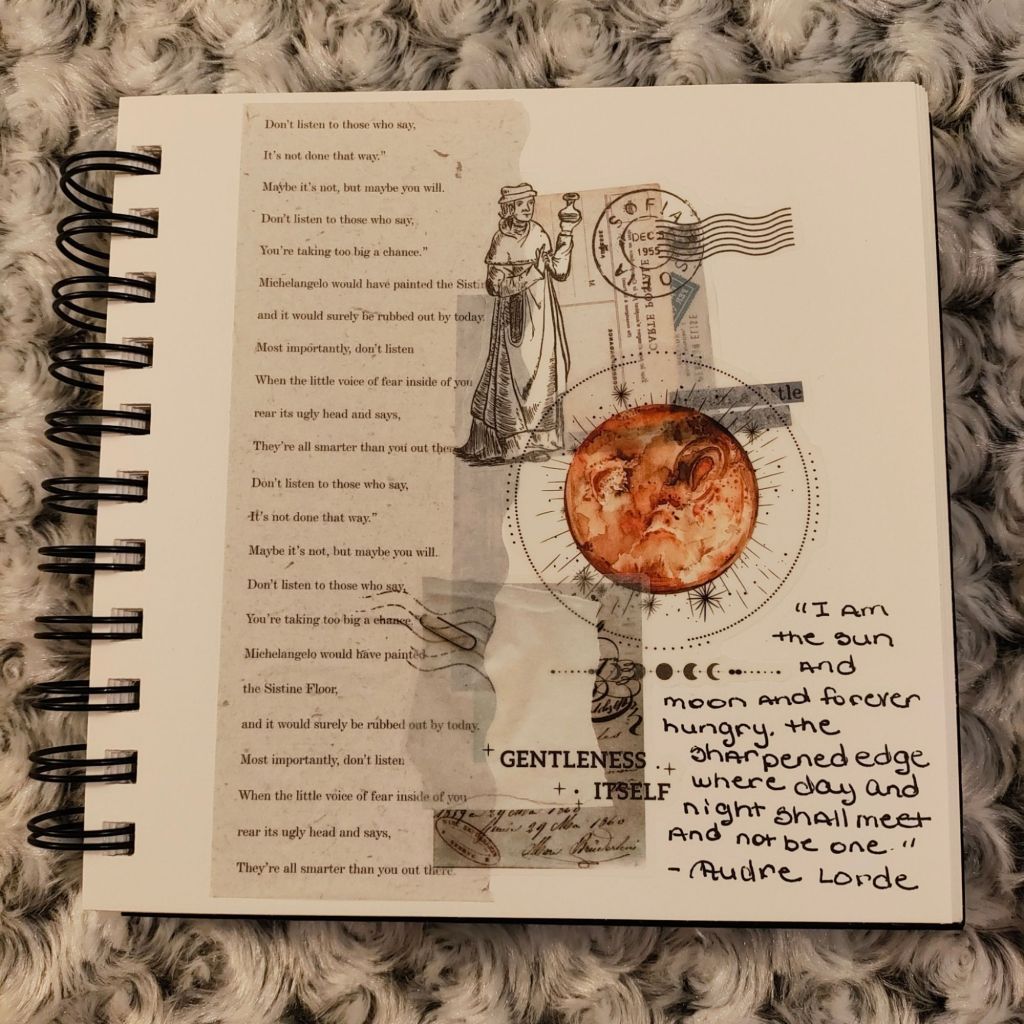 Don't listen to those who say,
It's not done that way."
Maybe it's not, but maybe you will.
Don't listen to those who say,
You're taking too big a chance."
Michelangelo would have painted the Sist
and it would surely be rubbed out by today.
Most importantly, don't listen
When the little voice of fear inside of you
rear its ugly head and says,
They're all smarter than you out there
Don't listen to those who say,
"It's not done that way."
Maybe it's not, but maybe you will.
Don't listen to those who say,
You're taking too big a chance."
Michelangelo would have painted
the Sistine Floor,
and it would surely be rubbed out by today.
Most importantly, don't listen
When the little voice of fear inside of you
rear its ugly head and says,
They're all smarter than you out there.
SOFIA
DEC 3
1955
CARTE POSTALE
tle
GENTLENESS
ITSELF
29 Mai 1860
"I Am
the sun
And
moon and forever
hungry. the
sharpened edge
where day and
night shall meet
And not be one."
- Audre Lorde